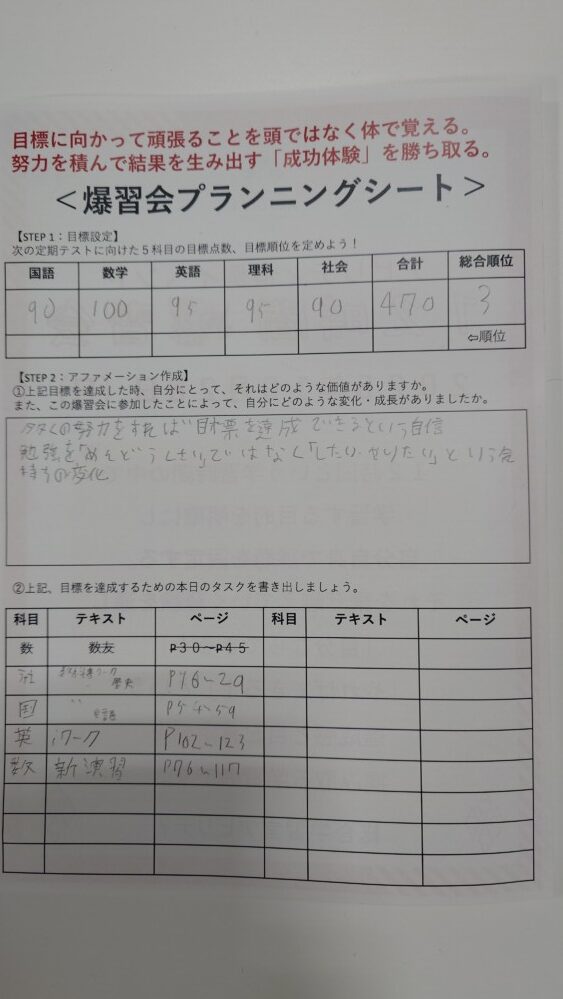 目標に向かって頑張ることを頭ではなく体で覚える。
努力を積んで結果を生み出す「成功体験」を勝ち取る。
＜爆習会プランニングシート＞
【STEP 1：目標設定】
次の定期テストに向けた５科目の目標点数、目標順位を定めよう！
国語 数学 英語 理科 社会 合計 総合順位
90 100 95 95 90 470 3
⇦順位
【STEP 2：アファメーション作成】
①上記目標を達成した時、自分にとって、それはどのような価値がありますか。
また、この爆習会に参加したことによって、自分にどのような変化・成長がありましたか。
多くの努力をすれば目標を達成できるという自信
勉強を「めんどうくさい」ではなく「したい、やりたい」という気
持ちの変化
②上記、目標を達成するための本日のタスクを書き出しましょう。
科目 テキスト ページ 科目 テキスト ページ
数 数友 P３０～P４５
社 ワーク 歴史 P16~29
国 〃 国語 P54~59
英 iワーク P102~123
数 新演習 P76~117